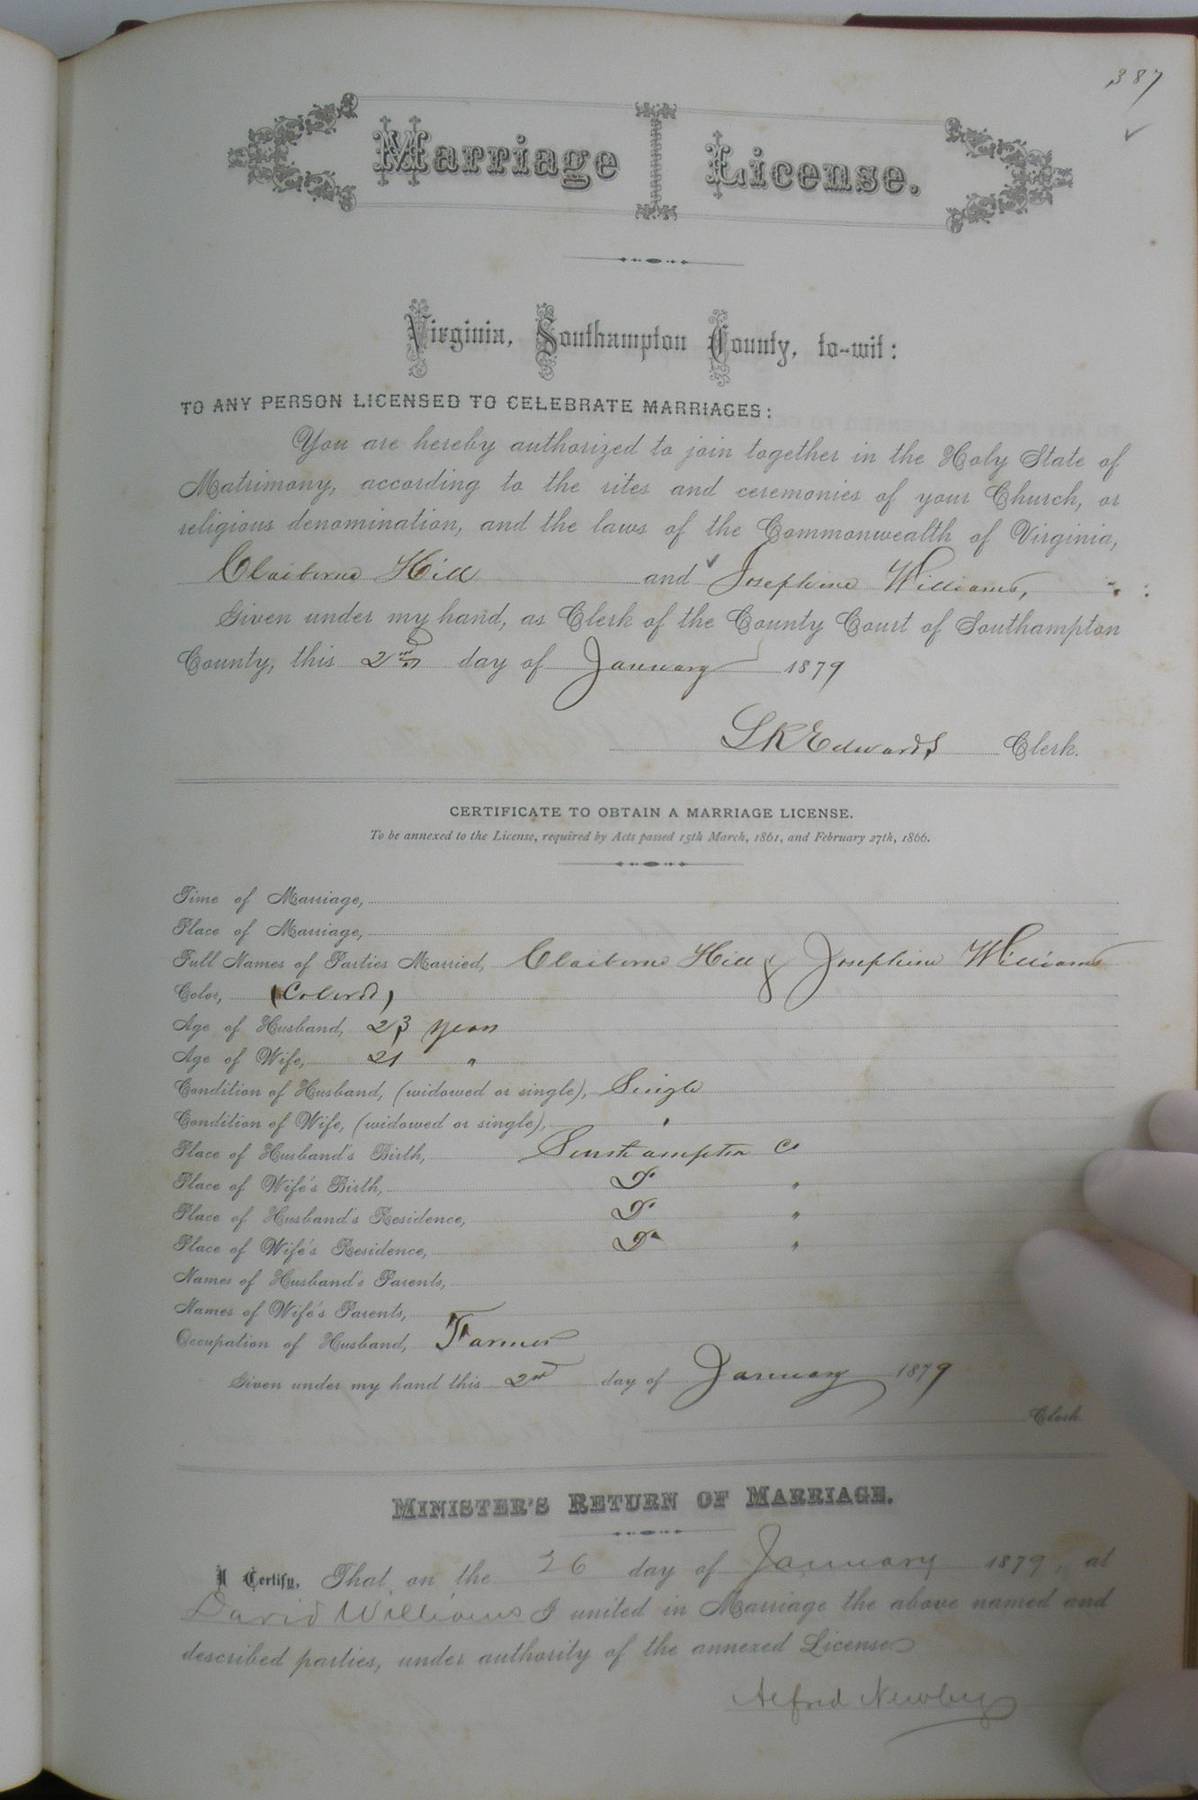 387
Marriage License.
Virginia, Southampton County, to-wit:
TO ANY PERSON LICENSED TO CELEBRATE MARRIAGES:
You are hereby authorized to join together in the Holy State of
Matrimony, according to the rites and ceremonies of your Church, or
religious denomination, and the laws of the Commonwealth of Virginia,
Claiborne Hill and Josephine Williams,
Given under my hand, as Clerk of the County Court of Southampton
County, this 2nd day of January 1879
L R Edwards Clerk.
CERTIFICATE TO OBTAIN A MARRIAGE LICENSE.
To be annexed to the License, required by Acts passed 15th March, 1861, and February 27th, 1866.
Time of Marriage,
Place of Marriage,
Full Names of Parties Married, Claiborne Hill & Josephine Williams
Color, (Colord)
Age of Husband, 23 years
Age of Wife, 21 "
Condition of Husband, (widowed or single), Single
Condition of Wife, (widowed or single), "
Place of Husband's Birth, Southampton Co
Place of Wife's Birth, Do "
Place of Husband's Residence, Do "
Place of Wife's Residence, Do "
Names of Husband's Parents,
Names of Wife's Parents,
Occupation of Husband, Farmer
Given under my hand this 2nd day of January 1879
Clerk
MINISTER'S RETURN OF MARRIAGE.
I Certify, That on the 26 day of January 1879, at
David Williams I united in Marriage the above named and
described parties, under authority of the annexed License
Alfred Newby